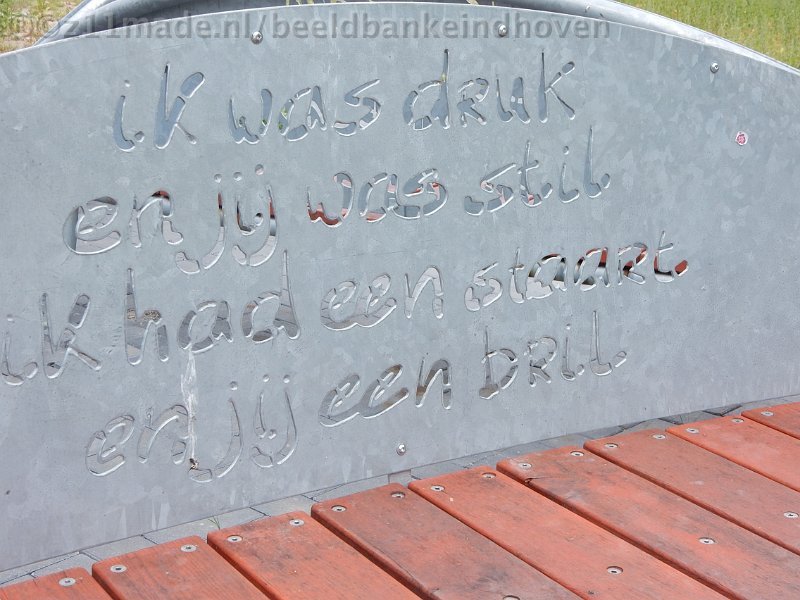 ©zi11made.nl/beeldbankeindhoven
ik was druk
en jij was stil
ik had een staart
en jij een bril.